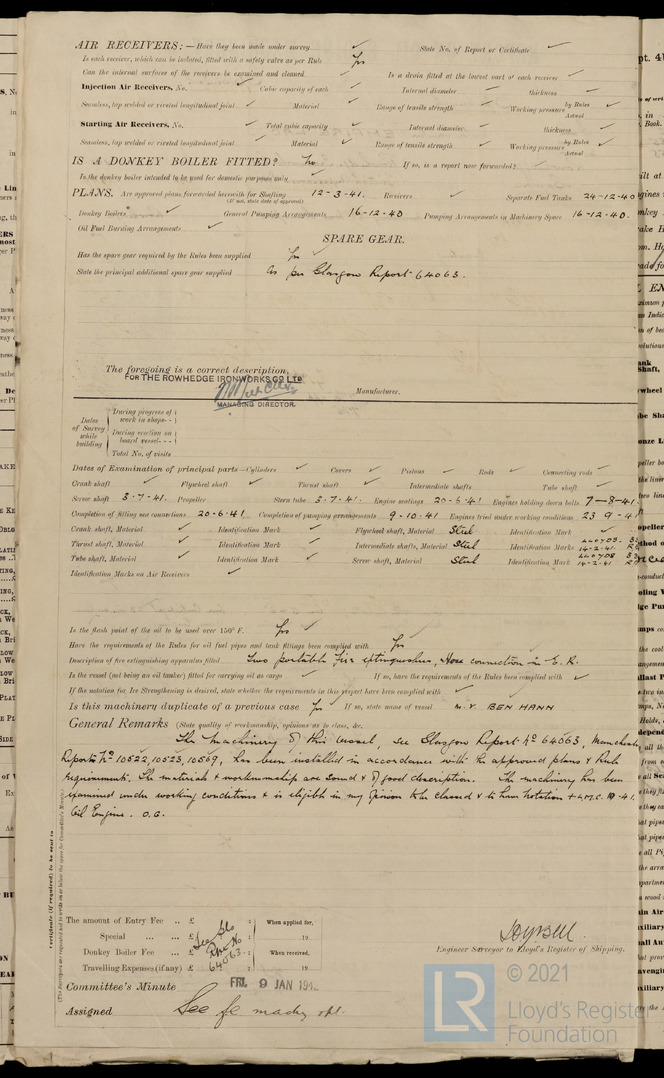 AIR RECEIVERS:— Have they been made under survey ✓ State No. of Report or Certificate ✓
Is each receiver, which can be isolated, fitted with a safety valve as per Rule Yes
Can the internal surfaces of the receivers be examined and cleaned ✓ Is a drain fitted at the lowest part of each receiver ✓
Injection Air Receivers, No. ✓ Cubic capacity of each ✓ Internal diameter ✓ thickness ✓
Seamless, lap welded or riveted longitudinal joint ✓ Material ✓ Range of tensile strength ✓ Working pressure by Rules ✓ Actual
Starting Air Receivers, No. ✓ Total cubic capacity ✓ Internal diameter ✓ thickness ✓
Seamless, lap welded or riveted longitudinal joint ✓ Material ✓ Range of tensile strength ✓ Working pressure by Rules ✓ Actual
IS A DONKEY BOILER FITTED? No If so, is a report now forwarded? ✓
Is the donkey boiler intended to be used for domestic purposes only ✓
PLANS. Are approved plans forwarded herewith for Shafting 12-3-41. Receivers ✓ Separate Fuel Tanks 24-12-40
(If not, state date of approval)
Donkey Boilers ✓ General Pumping Arrangements 16-12-40 Pumping Arrangements in Machinery Space 16-12-40.
Oil Fuel Burning Arrangements ✓
SPARE GEAR.
Has the spare gear required by the Rules been supplied Yes ✓
State the principal additional spare gear supplied As per Glasgow Report 64063.
The foregoing is a correct description,
FOR THE ROWHEDGE IRONWORKS CO LTD
Manufacturer.
MANAGING DIRECTOR.
Dates of Survey while building
During progress of work in shops - -
During erection on board vessel - - -
Total No. of visits
Dates of Examination of principal parts—Cylinders ✓ Covers ✓ Pistons ✓ Rods ✓ Connecting rods ✓
Crank shaft ✓ Flywheel shaft ✓ Thrust shaft ✓ Intermediate shafts Tube shaft ✓
Screw shaft 3-7-41. Propeller Stern tube 3-7-41. Engine seatings 20-6-41 Engines holding down bolts 7-8-41.
Completion of fitting sea connections 20-6-41 Completion of pumping arrangements 9-10-41 Engines tried under working conditions 23 9-4
Crank shaft, Material ✓ Identification Mark ✓ Flywheel shaft, Material Steel Identification Mark ✓
Thrust shaft, Material ✓ Identification Mark ✓ Intermediate shafts, Material Steel Identification Marks 14-2-41
Tube shaft, Material ✓ Identification Mark ✓ Screw shaft, Material Steel Identification Mark 14-2-41
Identification Marks on Air Receivers ✓
Is the flash point of the oil to be used over 150° F. Yes ✓
Have the requirements of the Rules for oil fuel pipes and tank fittings been complied with Yes
Description of fire extinguishing apparatus fitted Two portable fire extinguishers, Hose connection in E. R.
Is the vessel (not being an oil tanker) fitted for carrying oil as cargo ✓ If so, have the requirements of the Rules been complied with ✓
If the notation for Ice Strengthening is desired, state whether the requirements in this respect have been complied with ✓
Is this machinery duplicate of a previous case Yes ✓ If so, state name of vessel M.V. BEN HANN
General Remarks (State quality of workmanship, opinions as to class, &c.
The machinery of this vessel, see Glasgow Report No 64063, Manchester
Reports No 10522, 10523, 10569, has been installed in accordance with the approved plans & Rule
requirements. The materials & workmanship are sound & of good description. The machinery has been
examined under working conditions & is eligible in my opinion to be classed & to have notation + L.M.C. 10-41.
Oil Engine. O.G.
Certificate (if required) to be sent to
(The Surveyors are requested not to write on or below the space for Committee's Minute.)
The amount of Entry Fee .. £ : : When applied for,
Special ... ... £ : : 19
Donkey Boiler Fee ... £ : : When received,
Travelling Expenses (if any) £ : : 19
See Gls Rpt No 64063
Engineer Surveyor to Lloyd's Register of Shipping.
Committee's Minute FRI. 9 JAN 194
Assigned See fe machy rpt.
© 2021
LR
Lloyd's Register
Foundation